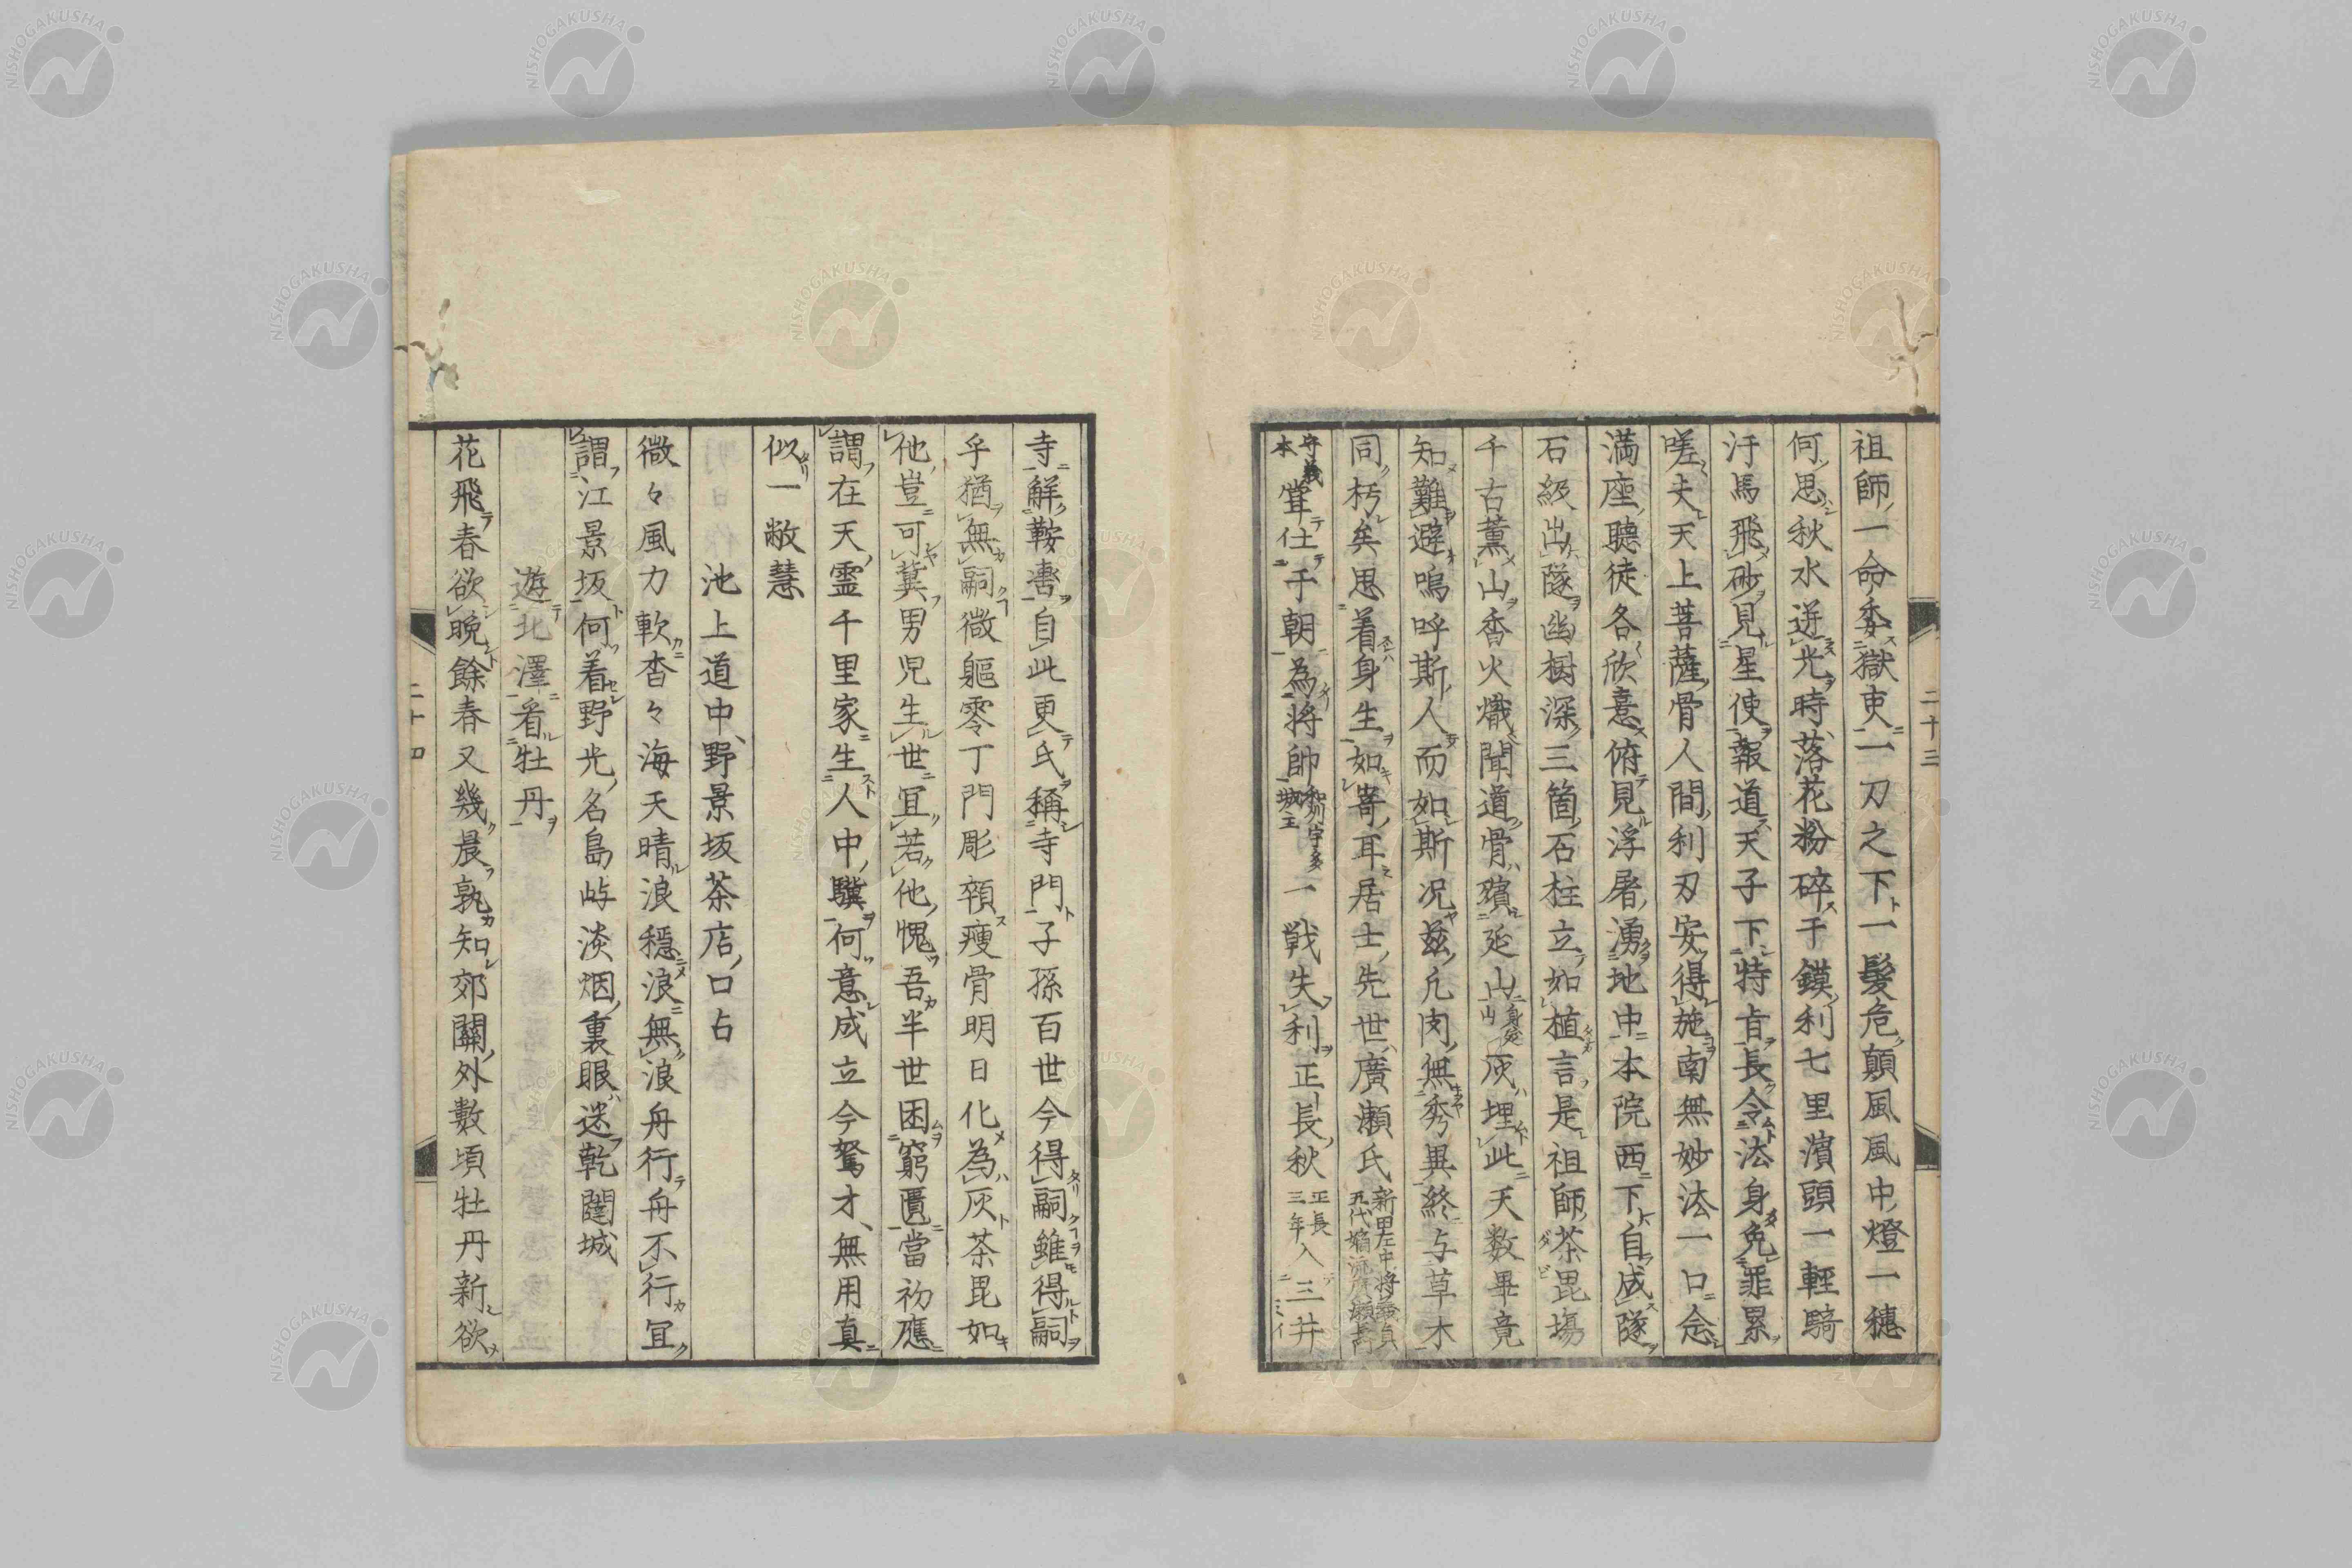 祖師一命委獄吏一刀之下一髮危顛風風中燈一穗
何思秋水迸光時落花粉碎干鏌利七里濱頭一輕騎
汗馬飛砂見星使報道天子下特旨長令法身免罪累
嗟夫天上菩薩骨人間利刃安得施南無妙法一口念
満座聽徒各欣意俯見浮屠湧地中本院西下自成隧
石級出隧幽樹深三箇石柱立如植言是祖師茶毘場
千古薫山香火熾聞道骨殯延山身延山灰埋此天数畢竟
知難避嗚呼斯人而如斯况茲凡肉無秀異終与草木
同朽矣思着身生如寄耳居士先世廣瀬氏新田左中将義貞
五代嫡流廣瀬
守義本甞仕于朝為将帥和州宇多城主一戦失利正長秋正長三年入三井
寺解鞍書自此更氏稱寺門子孫百世今得嗣雖得嗣
乎猶無嗣微軀零丁門彫顇瘦骨明日化為灰茶毘如
他豈可冀男児生世冝若他愧吾半世困窮匱當初應
謂在天霊千里家生人中驥何意成立今駑才無用真
似一敝慧
池上道中野景坂茶店口占
微々風力軟杳々海天晴浪穏浪無浪舟行舟不行冝
謂江景坂何着野光名島屿淡烟裏眼迷乾闥城
遊北澤看牡丹
花飛春欲晩餘春又幾晨孰知郊關外數頃牡丹新欲
二十三
二十四
NISHOGAKUSHA